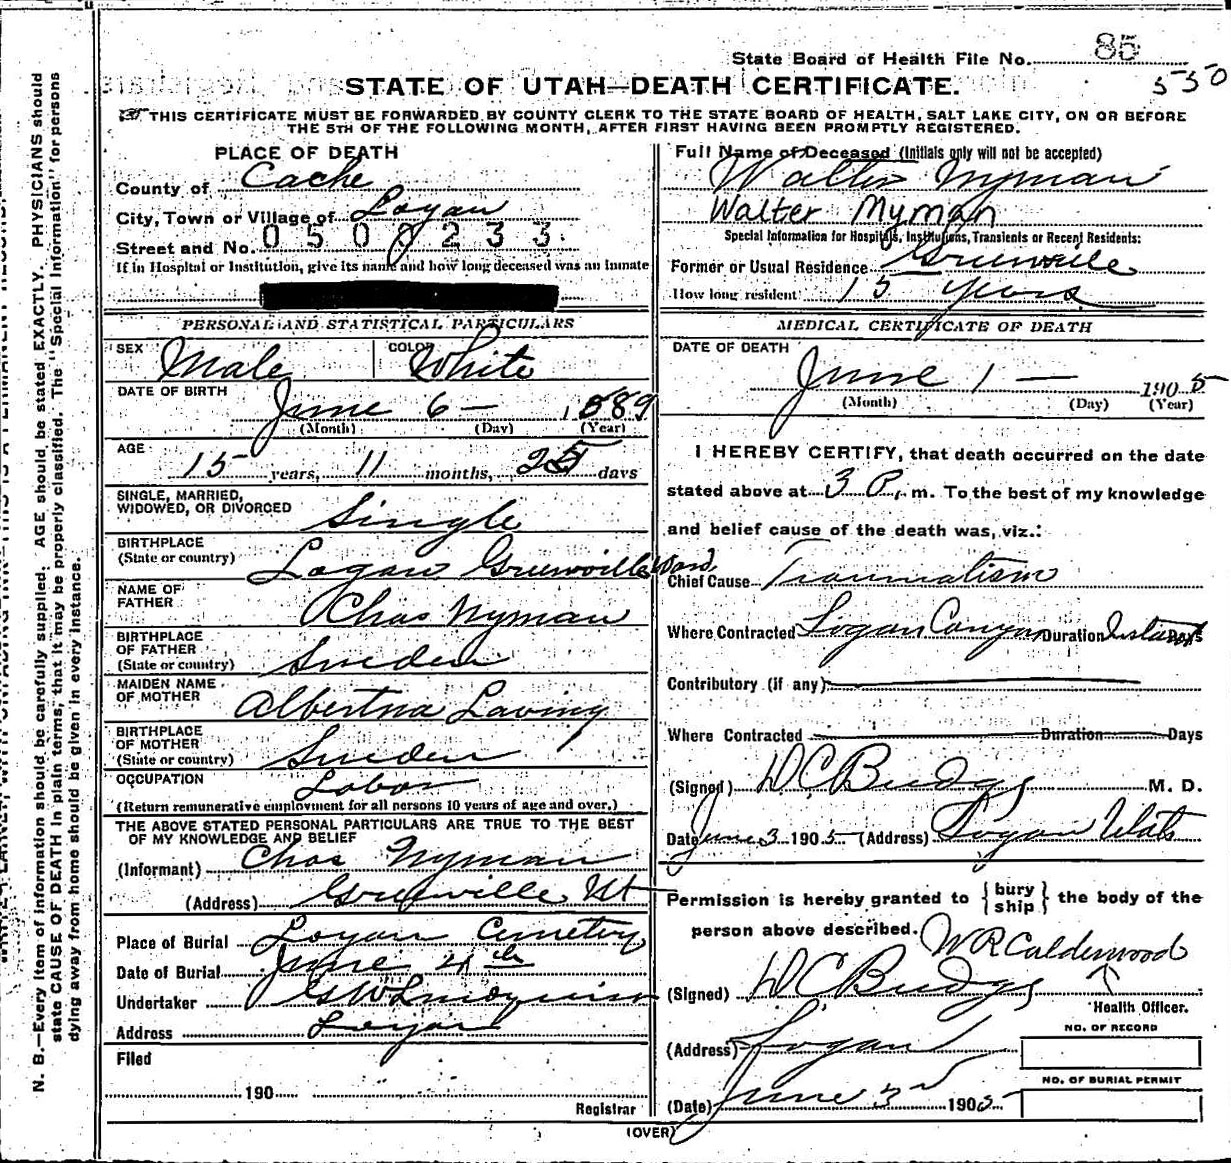 State Board of Health File No. 85
530
STATE OF UTAH—DEATH CERTIFICATE.
THIS CERTIFICATE MUST BE FORWARDED BY COUNTY CLERK TO THE STATE BOARD OF HEALTH, SALT LAKE CITY, ON OR BEFORE
THE 5TH OF THE FOLLOWING MONTH, AFTER FIRST HAVING BEEN PROMPTLY REGISTERED.
PLACE OF DEATH
County of Cache
City, Town or Village of Logan
Street and No. 0500233
If in Hospital or Institution, give its name and how long deceased was an inmate
Full Name of Deceased (Initials only will not be accepted)
Walter Nyman
Walter Myman
Special Information for Hospitals, Institutions, Transients or Recent Residents:
Former or Usual Residence Greenville
How long resident 15 years
PERSONAL AND STATISTICAL PARTICULARS
SEX Male COLOR White
DATE OF BIRTH June 6 — 1889
(Month) (Day) (Year)
AGE 15 years, 11 months, 25 days
SINGLE, MARRIED,
WIDOWED, OR DIVORCED Single
BIRTHPLACE
(State or country) Logan Greenville Ward
NAME OF
FATHER Chas Nyman
BIRTHPLACE
OF FATHER
(State or country) Sweden
MAIDEN NAME
OF MOTHER Albertna Laving
BIRTHPLACE
OF MOTHER
(State or country) Sweden
OCCUPATION Labor
(Return remunerative employment for all persons 10 years of age and over.)
THE ABOVE STATED PERSONAL PARTICULARS ARE TRUE TO THE BEST
OF MY KNOWLEDGE AND BELIEF
(Informant) Chas Nyman
(Address) Greenville Ut
Place of Burial Logan Cemetery
Date of Burial June 4th
Undertaker
Address Logan
Filed
190
Registrar
MEDICAL CERTIFICATE OF DEATH
DATE OF DEATH
June 1 — 1905
(Month) (Day) (Year)
I HEREBY CERTIFY, that death occurred on the date
stated above at 3 P. m. To the best of my knowledge
and belief cause of the death was, viz.:
Chief Cause Traumatism
Where Contracted Logan Canyon Duration Instant Days
Contributory (if any)
Where Contracted Duration Days
(Signed) D C Budge M. D.
Date June 3 1905 (Address) Logan Utah
Permission is hereby granted to {bury
ship} the body of the
person above described. W R Calderwood
(Signed) D C Budge
Health Officer.
NO. OF RECORD
(Address) Logan
NO. OF BURIAL PERMIT
(Date) June 3rd 1905
(OVER)
N. B.—Every item of information should be carefully supplied. AGE should be stated EXACTLY. PHYSICIANS should
state CAUSE OF DEATH in plain terms, that it may be properly classified. The "Special Information" for persons
dying away from home should be given in every instance.